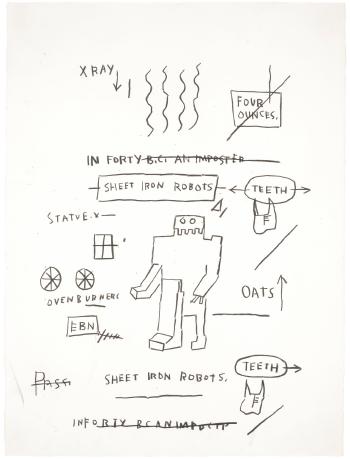 X RAY
FOUR
OUNCES.
IN FORTY B.C. AN IMPOSTER
SHEET IRON ROBOTS
TEETH
F
STATUE.X
OVEN BURNERS
OATS
EBN
TEETH
SHEET IRON ROBOTS.
F
IN FORTY BC AN IMPOSTR